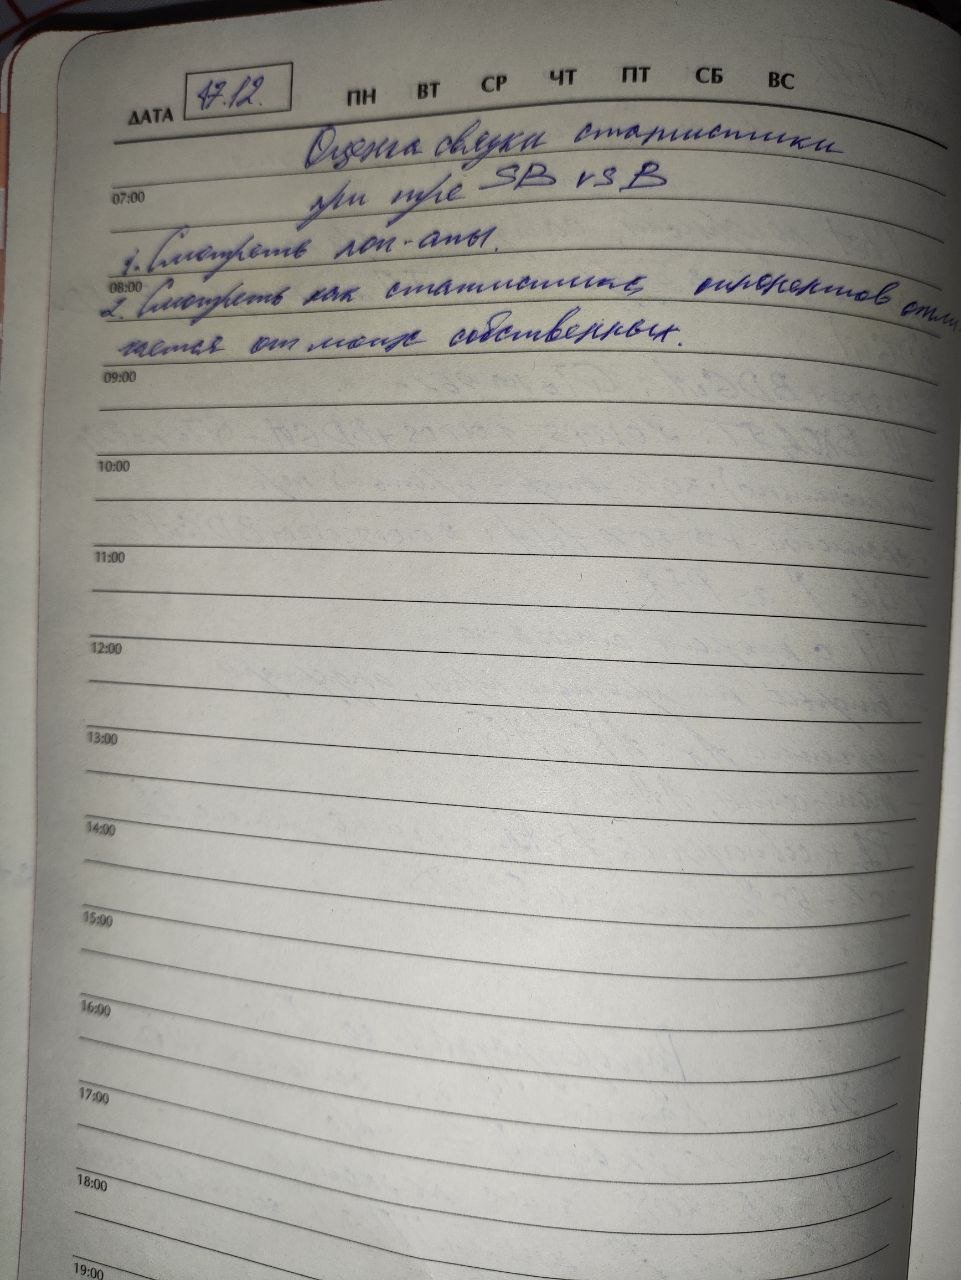 ДАТА 17.12. ПН ВТ СР ЧТ ПТ СБ ВС
Оценка связки статистики
07:00
при игре SB vs B
1. Смотреть поп-апы.
08:00
2. Смотреть как статистика оппонентов отли
чается от моих собственных.
09:00
10:00
11:00
12:00
13:00
14:00
15:00
16:00
17:00
18:00
19:00